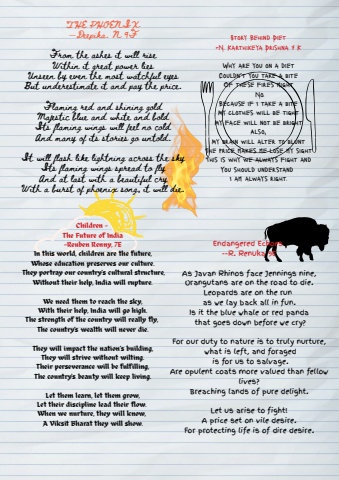 THE PHOENIX
--Deepika. N. 9F
From the ashes it will rise
Within it great power lies
Unseen by even the most watchful eyes
But underestimate it and pay the price.
Flaming red and shining gold
Majestic blue and white and bold
Its flaming wings will feel no cold
And many of its stories go untold.
It will flash like lightning across the sky
Its flaming wings spread to fly
And at last with a beautiful cry
With a burst of phoenix song, it will die.
Story Behind Diet
-N. Karthikeya Drishna 9 E
Why are you on a diet
Couldn't you take a bite
Of these fires right
No
Because if I take a bite
My clothes will be tight
My face will not be bright
Also,
My brain will alter to blunt
The price makes me lose my sight
This is why we always fight and
You should understand
I am always right.
Children -
The Future of India
-Reuben Renny, 7E
In this world, children are the future,
Whose education preserves our culture.
They portray our country's cultural structure,
Without their help, India will rupture.
We need them to reach the sky,
With their help, India will go high.
The strength of the country will really fly,
The country's wealth will never die.
They will impact the nation's building,
They will strive without wilting.
Their perseverance will be fulfilling,
The country's beauty will keep living.
Let them learn, let them grow,
Let their discipline lead their flow.
When we nurture, they will know,
A Viksit Bharat they will show.
Endangered Echoes
--R. Renuka
As Javan Rhinos face Jennings nine,
Orangutans are on the road to die.
Leopards are on the run
as we lay back all in fun.
Is it the blue whale or red panda
that goes down before we cry?
For our duty to nature is to truly nurture,
what is left, and foraged
is for us to salvage.
Are opulent coats more valued than fellow
lives?
Breaching lands of pure delight.
Let us arise to fight!
A price set on vile desire.
For protecting life is of dire desire.